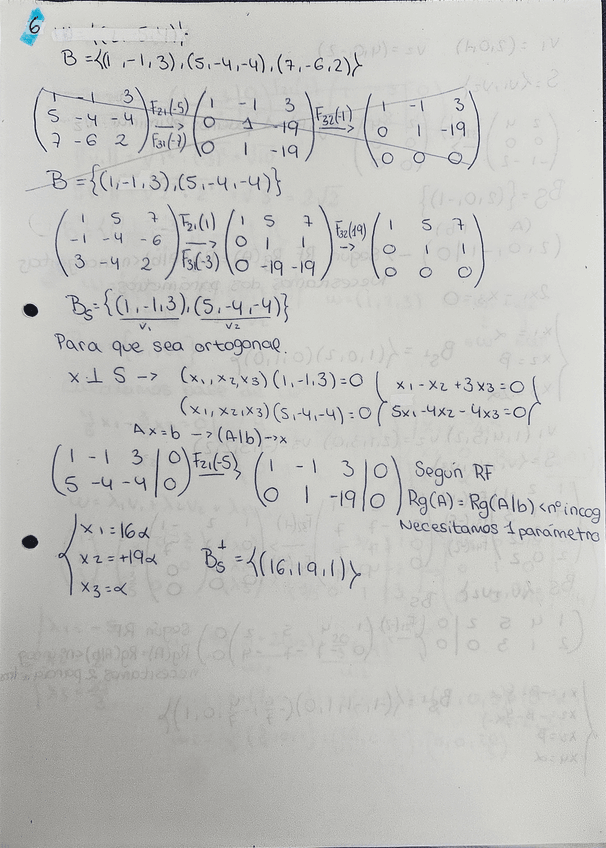 6
B={(1,-1,3),(5,-4,-4),(7,-6,2)}
( 1 -1 3 ; 5 -4 -4 ; 7 -6 2 ) F21(-5) F31(-7) → ( 1 -1 3 ; 0 1 -19 ; 0 1 -19 ) F32(-1) → ( 1 -1 3 ; 0 1 -19 ; 0 0 0 )
B={(1,-1,3),(5,-4,-4)}
( 1 5 7 ; -1 -4 -6 ; 3 -4 2 ) F21(1) → F31(-3) ( 1 5 7 ; 0 1 1 ; 0 -19 -19 ) F32(19) → ( 1 5 7 ; 0 1 1 ; 0 0 0 )
Bs={(1,-1,3),(5,-4,-4)}
v1 v2
Para que sea ortogonal:
x⊥S -> (x1,x2,x3)(1,-1,3)=0 { x1-x2+3x3=0 {
(x1,x2,x3)(5,-4,-4)=0 { 5x1-4x2-4x3=0 {
Ax=b -> (A|b)->x
( 1 -1 3 | 0 ; 5 -4 -4 | 0 ) F21(-5) → ( 1 -1 3 | 0 ; 0 1 -19 | 0 ) Según RF
Rg(A)=Rg(A|b)<nº incog
Necesitamos 1 parámetro
{ x1=16α
x2=+19α Bs⊥={(16,19,1)}
x3=α